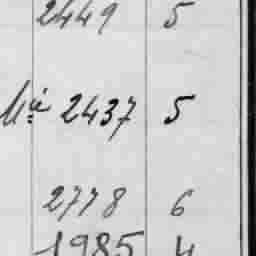 2449 5
2437 5
2778 6
1985 4